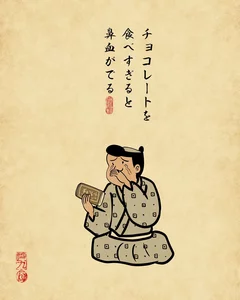 チョコレートを
食べすぎると
鼻血がでる